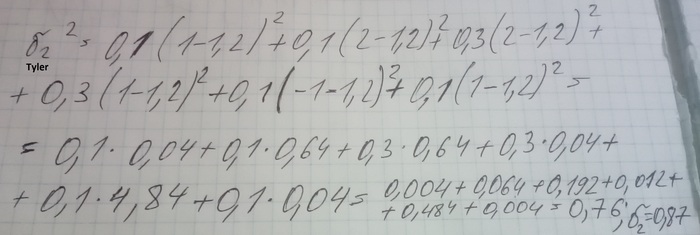 б₂² = 0,1(1-1,2)²+0,1(2-1,2)²+0,3(2-1,2)²+
Tyler
+ 0,3(1-1,2)²+0,1(-1-1,2)²+0,1(1-1,2)²=
= 0,1·0,04+0,1·0,64+0,3·0,64+0,3·0,04+
+ 0,1·4,84+0,1·0,04= 0,004+0,064+0,192+0,012+
+0,484+0,004=0,76; б₂=0,87